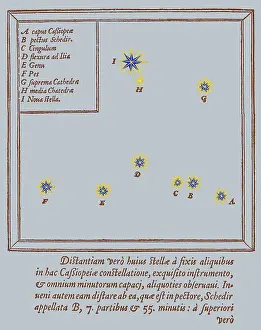 A caput Cassiopeæ
B pectus Schedir.
C Cingulum
D flexura ad Ilia
E Genu
F Pes
G suprema Cathedræ
H media Chatedræ
I Noua stella.
I
H
G
D
F
E
C
B
A
Distantiam verò huius stellæ à fixis aliquibus
in hac Cassiopeiæ constellatione, exquisito instrumento,
& omnium minutorum capacj, aliquoties obseruaui. In-
ueni autem eam distare ab ea, quæ est in pectore, Schedir
appellata B, 7. partibus & 55. minutis: à superiori
verò